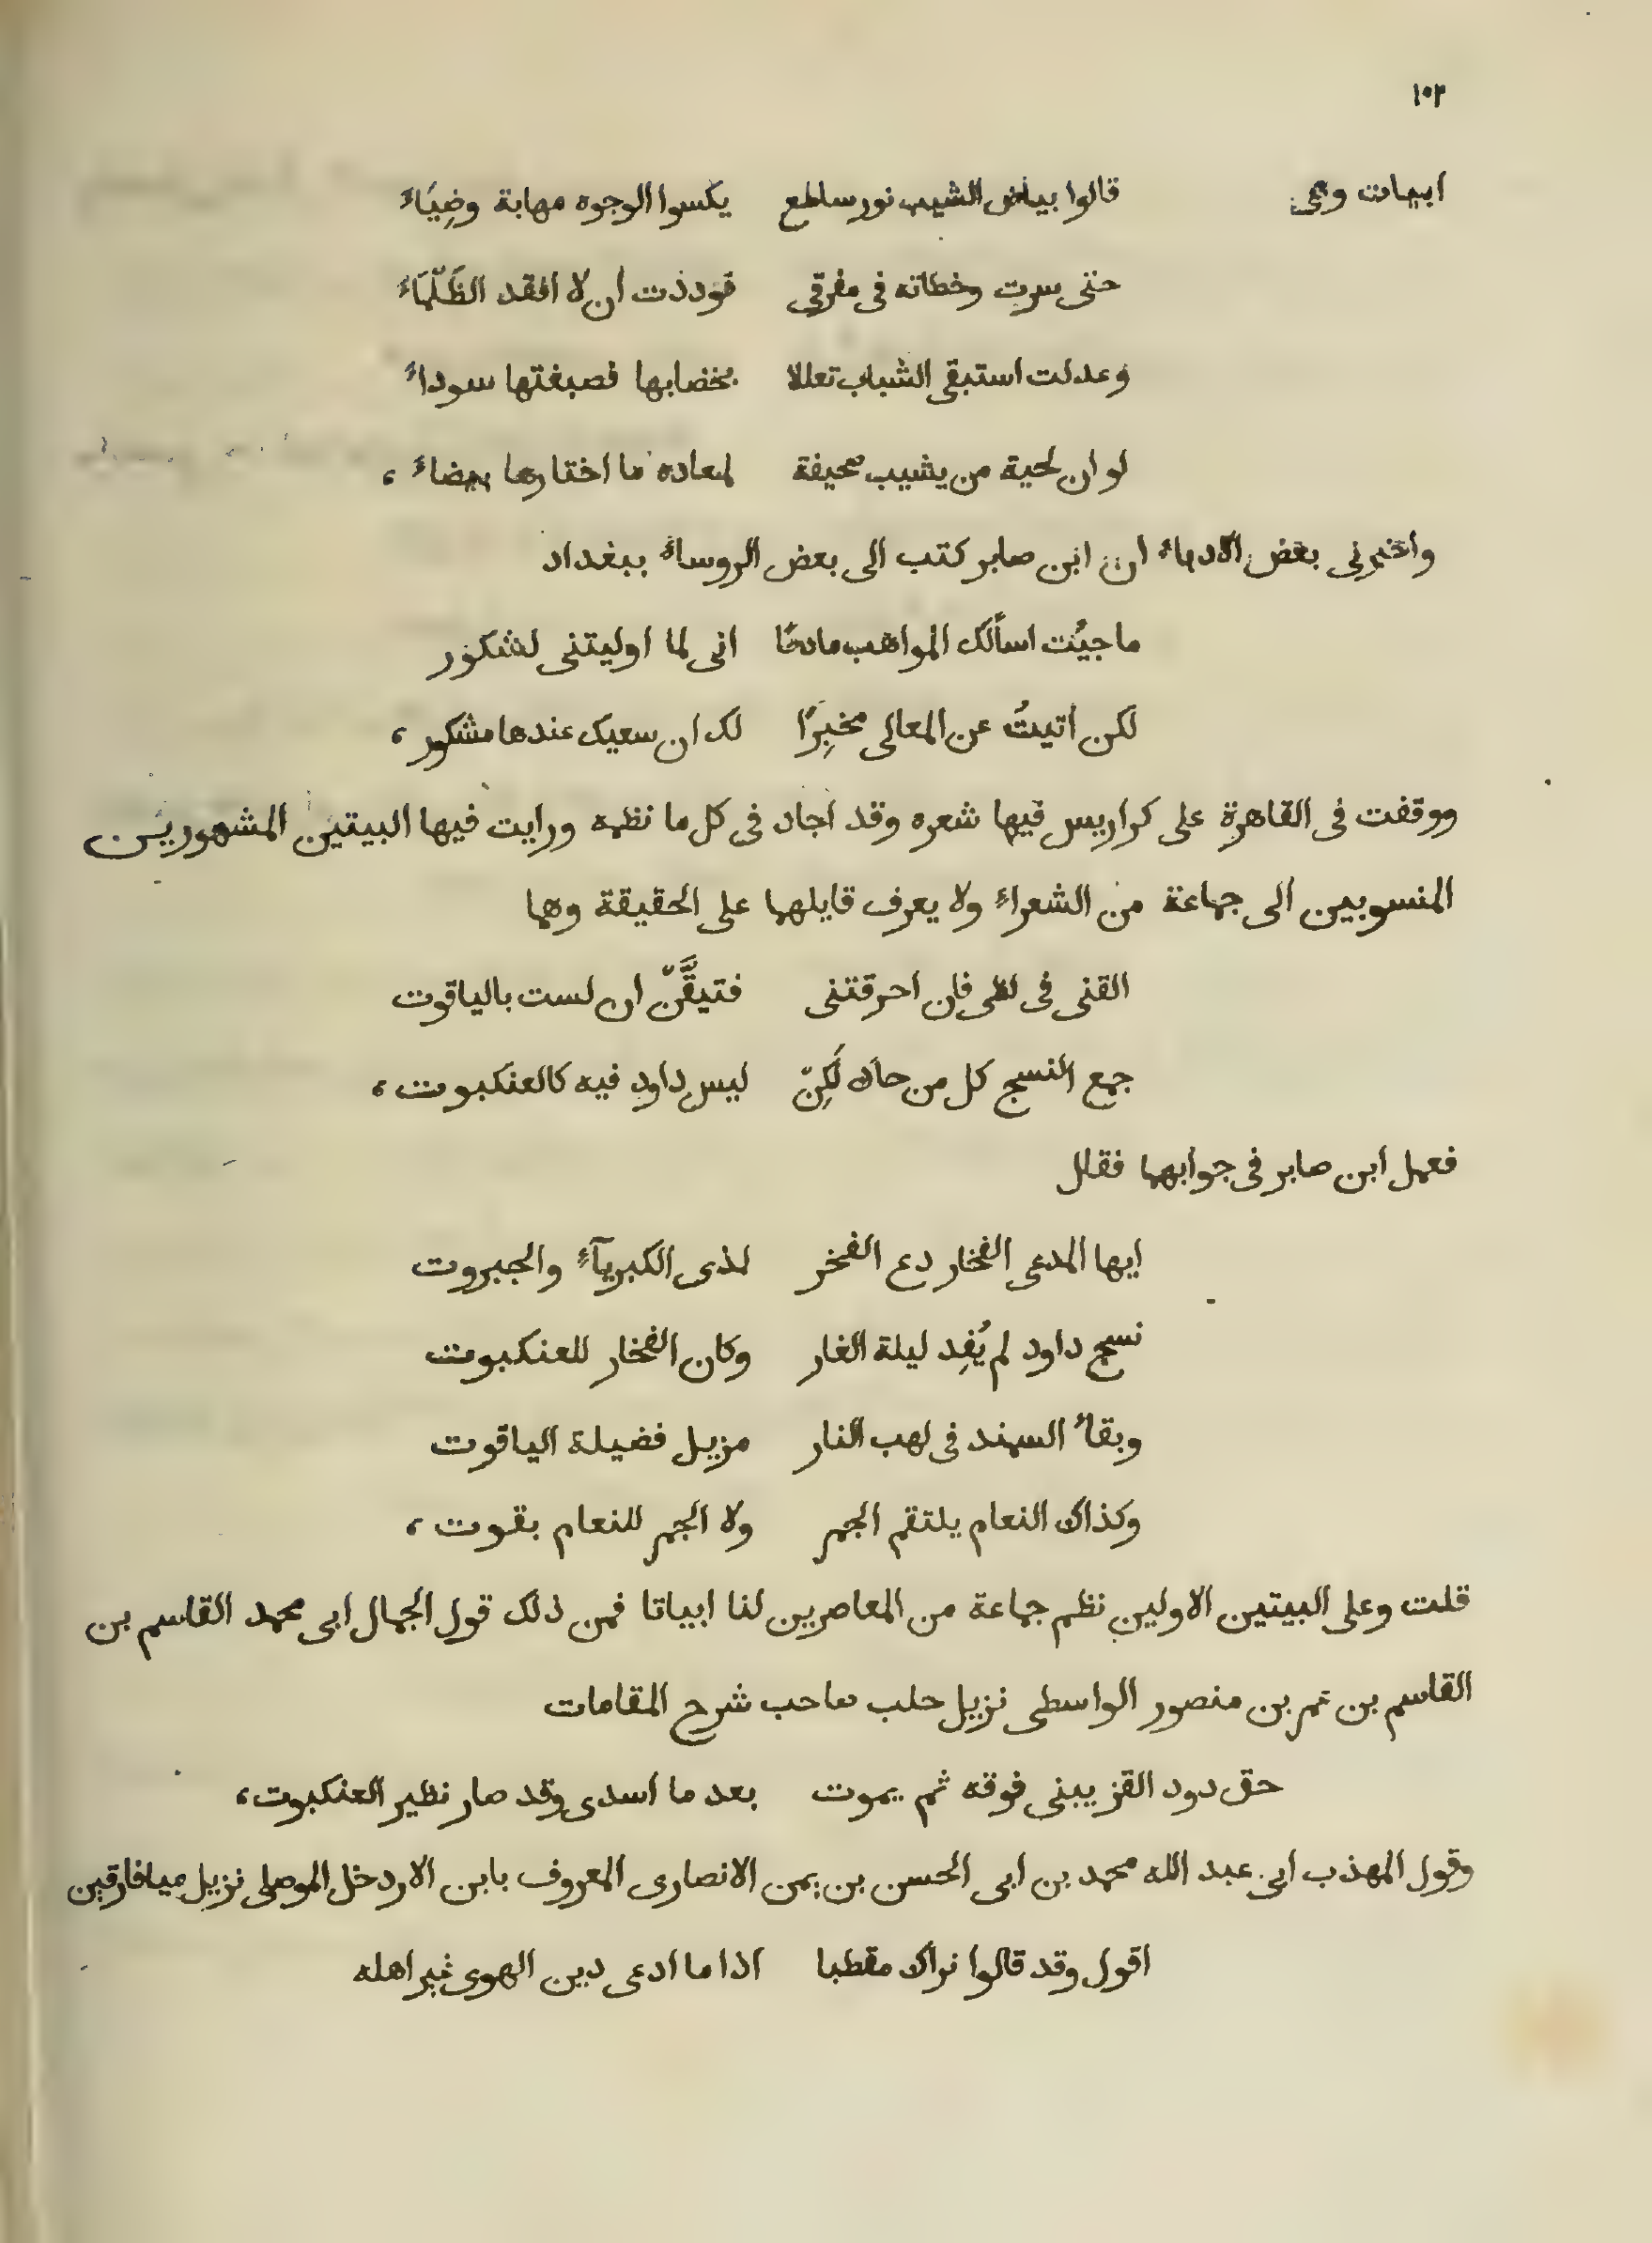 ١٠٢
ابيات وهى قالوا بياض الشيب نور ساطع يكسوا الوجوه مهابة وضِيَاءً
حتى سرت وخطاته فى مفرقى فوددت ان لا افقد الظَلْمَاءَ
وعدلت استبقى الشباب تعللا بخضابها فصبغتها سوداءً
لو ان لحية من يشيب صحيفة لمعاده ما اختارها بيضاءً ،
واخبرنى بعض الادباء ان ابن صابر كتب الى بعض الروساء ببغداد
ما جيُت اسألك المواهب مادحًا انى لما اوليتنى لشكور
لكن اتيتُ عن المعالى مخبِرًا لك ان سعيك عندها مشكور ،
ووقفت فى القاهرة على كراريس فيها شعره وقد اجاد فى كل ما نظمه ورايت فيها البيتين المشهورين
المنسوبين الى جماعة من الشعراء ولا يعرف قايلهما على الحقيقة وهما
القنى فى لظى فان احرقتنى فتيقَّنْ ان لست بالياقوت
جمع النسج كل من حاك لَكِنْ ليس داود فيه كالعنكبوت ،
فعمل ابن صابر فى جوابهما فقال
ايها المدعى الفخار دع الفخر لذى الكبرياَءِ والجبروت
نسج داود لم يُفِد ليلة الغار وكان الفخار للعنكبوت
وبقاُ السمند فى لهب النار مزيل فضيلة الياقوت
وكذاك النعام يلتقم الجمر ولا الجمر للنعام بقوت ،
قلت وعلى البيتين الاولين نظم جماعة من المعاصرين لنا ابياتا فمن ذلك قول الجمال ابى محمد القاسم بن
القاسم بن عمر بن منصور الواسطى نزيل حلب صاحب شرح المقامات
حق دود القز يبنى فوقه ثم يموت بعد ما اسدى وقد صار نظير العنكبوت ،
وقول المهذب ابى عبد الله محمد بن ابى الحسن بن يمن الانصارى المعروف بابن الاردخل الموصلى نزيل ميافارقين
اقول وقد قالوا نراك مقطبا اذا ما ادعى دين الهوى غير اهله